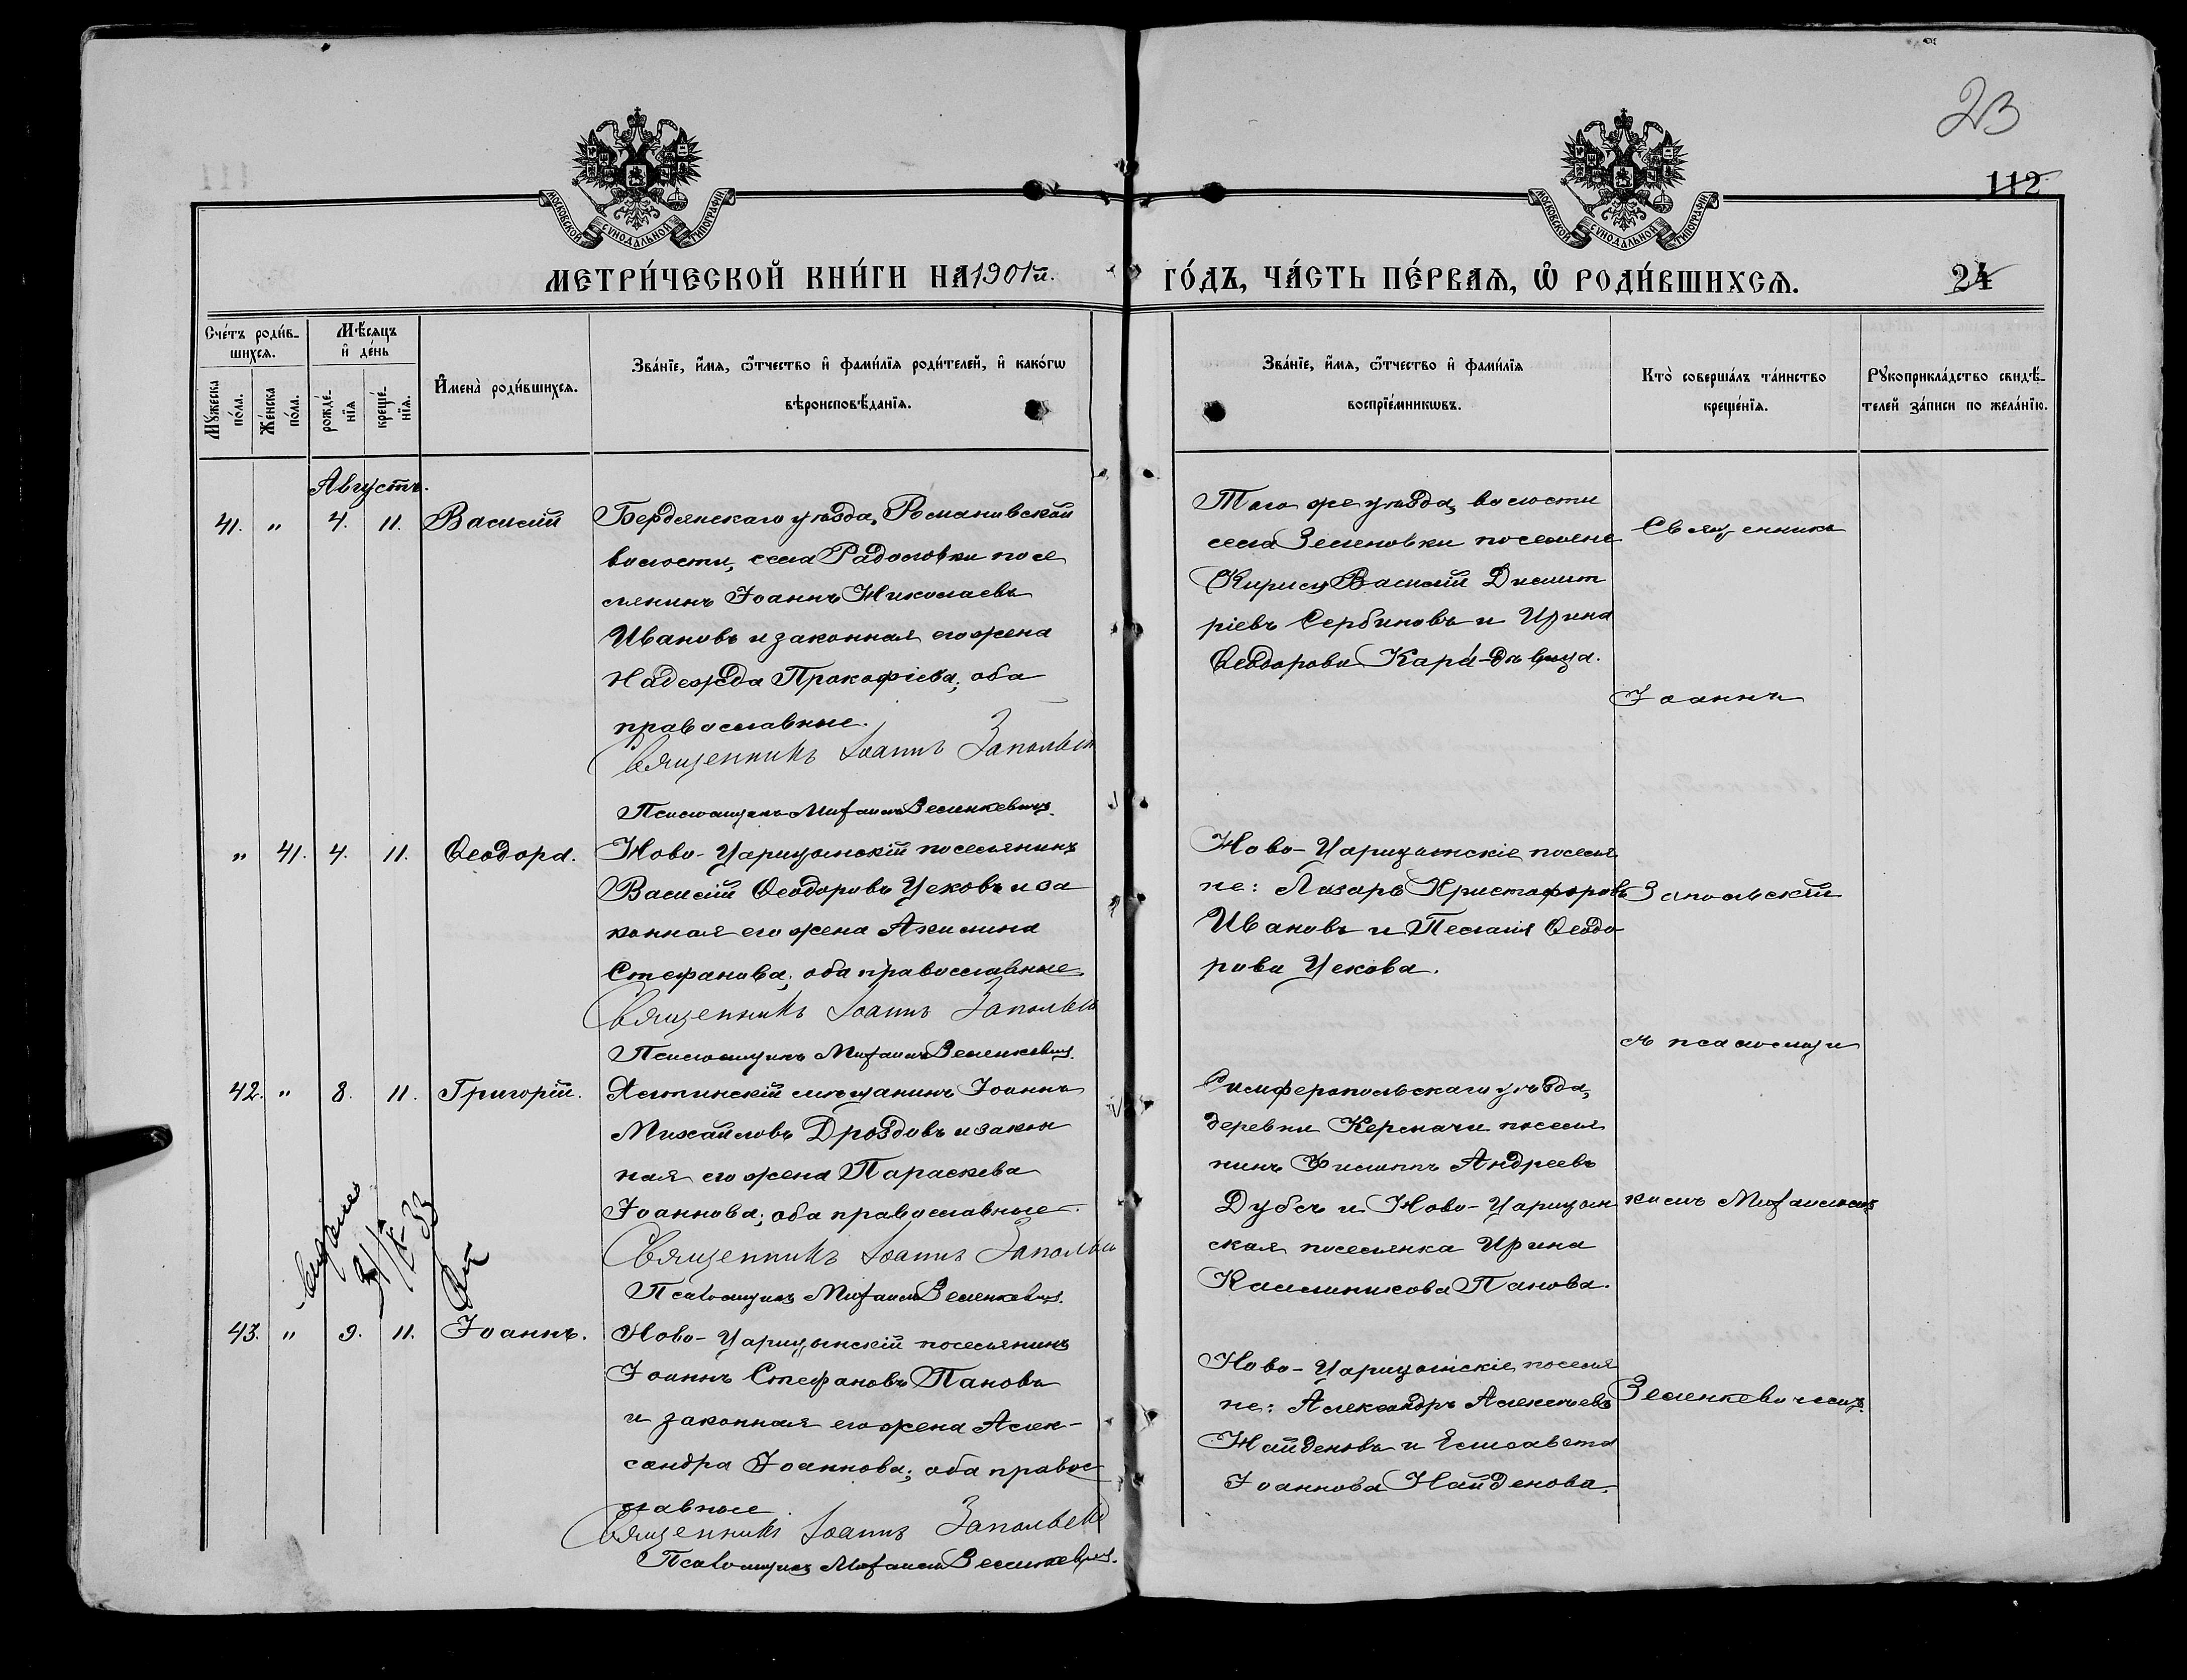 23
112
МОСКОВСКОЙ СѴНОДАЛЬНОЙ ТИПОГРАФІИ
МОСКОВСКОЙ СѴНОДАЛЬНОЙ ТИПОГРАФІИ
МЕТРИ́ЧЕСКОЙ КНИ́ГИ НА 1901й.
ГО́ДЪ, ЧА́СТЬ ПЕ́РВАѦ, Ѡ҆ РОДИ́ВШИХСѦ.
24
Сче́тъ роди́в-
шихсѧ.
Мꙋ́жеска
по́ла.
Же́нска
по́ла.
Мѣ́сѧцъ
и҆ де́нь
рожде́-
нїѧ
креще́-
нїѧ.
И҆мена̀ роди́вшихсѧ.
Зва́нїе, и҆́мѧ, ѻ҆́тчество и҆ фами́лїѧ роди́телей, и҆ како́гѡ
вѣроисповѣ́данїѧ.
Зва́нїе, и҆́мѧ, ѻ҆́тчество и҆ фами́лїѧ
воспрїе́мникѡвъ.
Кто̀ соверша́лъ та́инство
креще́нїѧ.
Рꙋкоприкла́дство свидѣ́-
телей за́писи по жела́нїю.
Августъ.
41. " 4. 11. Василій
Бердянскаго уѣзда, Романовской
волости, села Радоловки посе
лянинъ Іоаннъ Николаевъ
Ивановъ и законная его жена
Надежда Прокофіева; оба
православные.
Священникъ Іоаннъ Запольскій
Псаломщикъ Михаилъ Зеленкевичъ.
Того же уѣзда, волости
села Зеленовки поселяне
Василій Димит
ріевъ Сербиновъ и Ирина
Ѳеодорова
Священникъ
Іоаннъ
" 41. 4. 11. Ѳеодора.
Ново-Царицынскій поселянинъ
Василій Ѳеодоровъ Цековъ и за
конная его жена Акилина
Стефанова; оба православные
Священникъ Іоаннъ Запольскій
Псаломщикъ Михаилъ Зеленкевичъ.
Ново-Царицынскіе поселя
не: Лазарь Христофоровъ
Ивановъ и Пелагія Ѳеодо
рова Цекова.
Запольскій
съ псаломщи
42. " 8. 11. Григорій.
Ялтинскій мѣщанинъ Іоаннъ
Михаиловъ Дроздовъ и закон
ная его жена Параскева
Іоаннова; оба православные.
Священникъ Іоаннъ Запольскій
Псаломщикъ Михаилъ Зеленкевичъ.
Симферопольскаго уѣзда,
деревни Керменчи поселя
нинъ Филиппъ Андреевъ
Дубсъ и Ново-Царицын
ская поселянка Ирина
Каллиникова Панова.
комъ Михаиломъ
43. " 9. 11. Іоаннъ.
Ново-Царицынскій поселянинъ
Іоаннъ Стефановъ Пановъ
и законная его жена Алек-
сандра Іоаннова; оба правос
лавные.
Священникъ Іоаннъ Запольскій
Псаломщикъ Михаилъ Зеленкевичъ.
Ново-Царицынскіе поселя
не: Александръ Алексѣевъ
Найденовъ и Елисавета
Іоаннова Найденова.
Зеленкевичемъ.